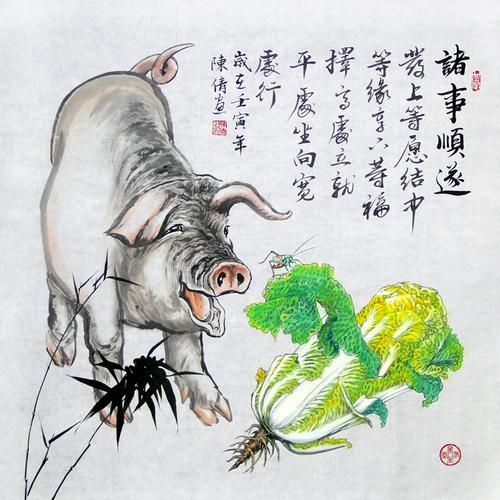 諸事順遂
發上等愿結中
等緣享下等福
擇高處立就
平處坐向寬
處行
歲在壬寅年
陳倩畫